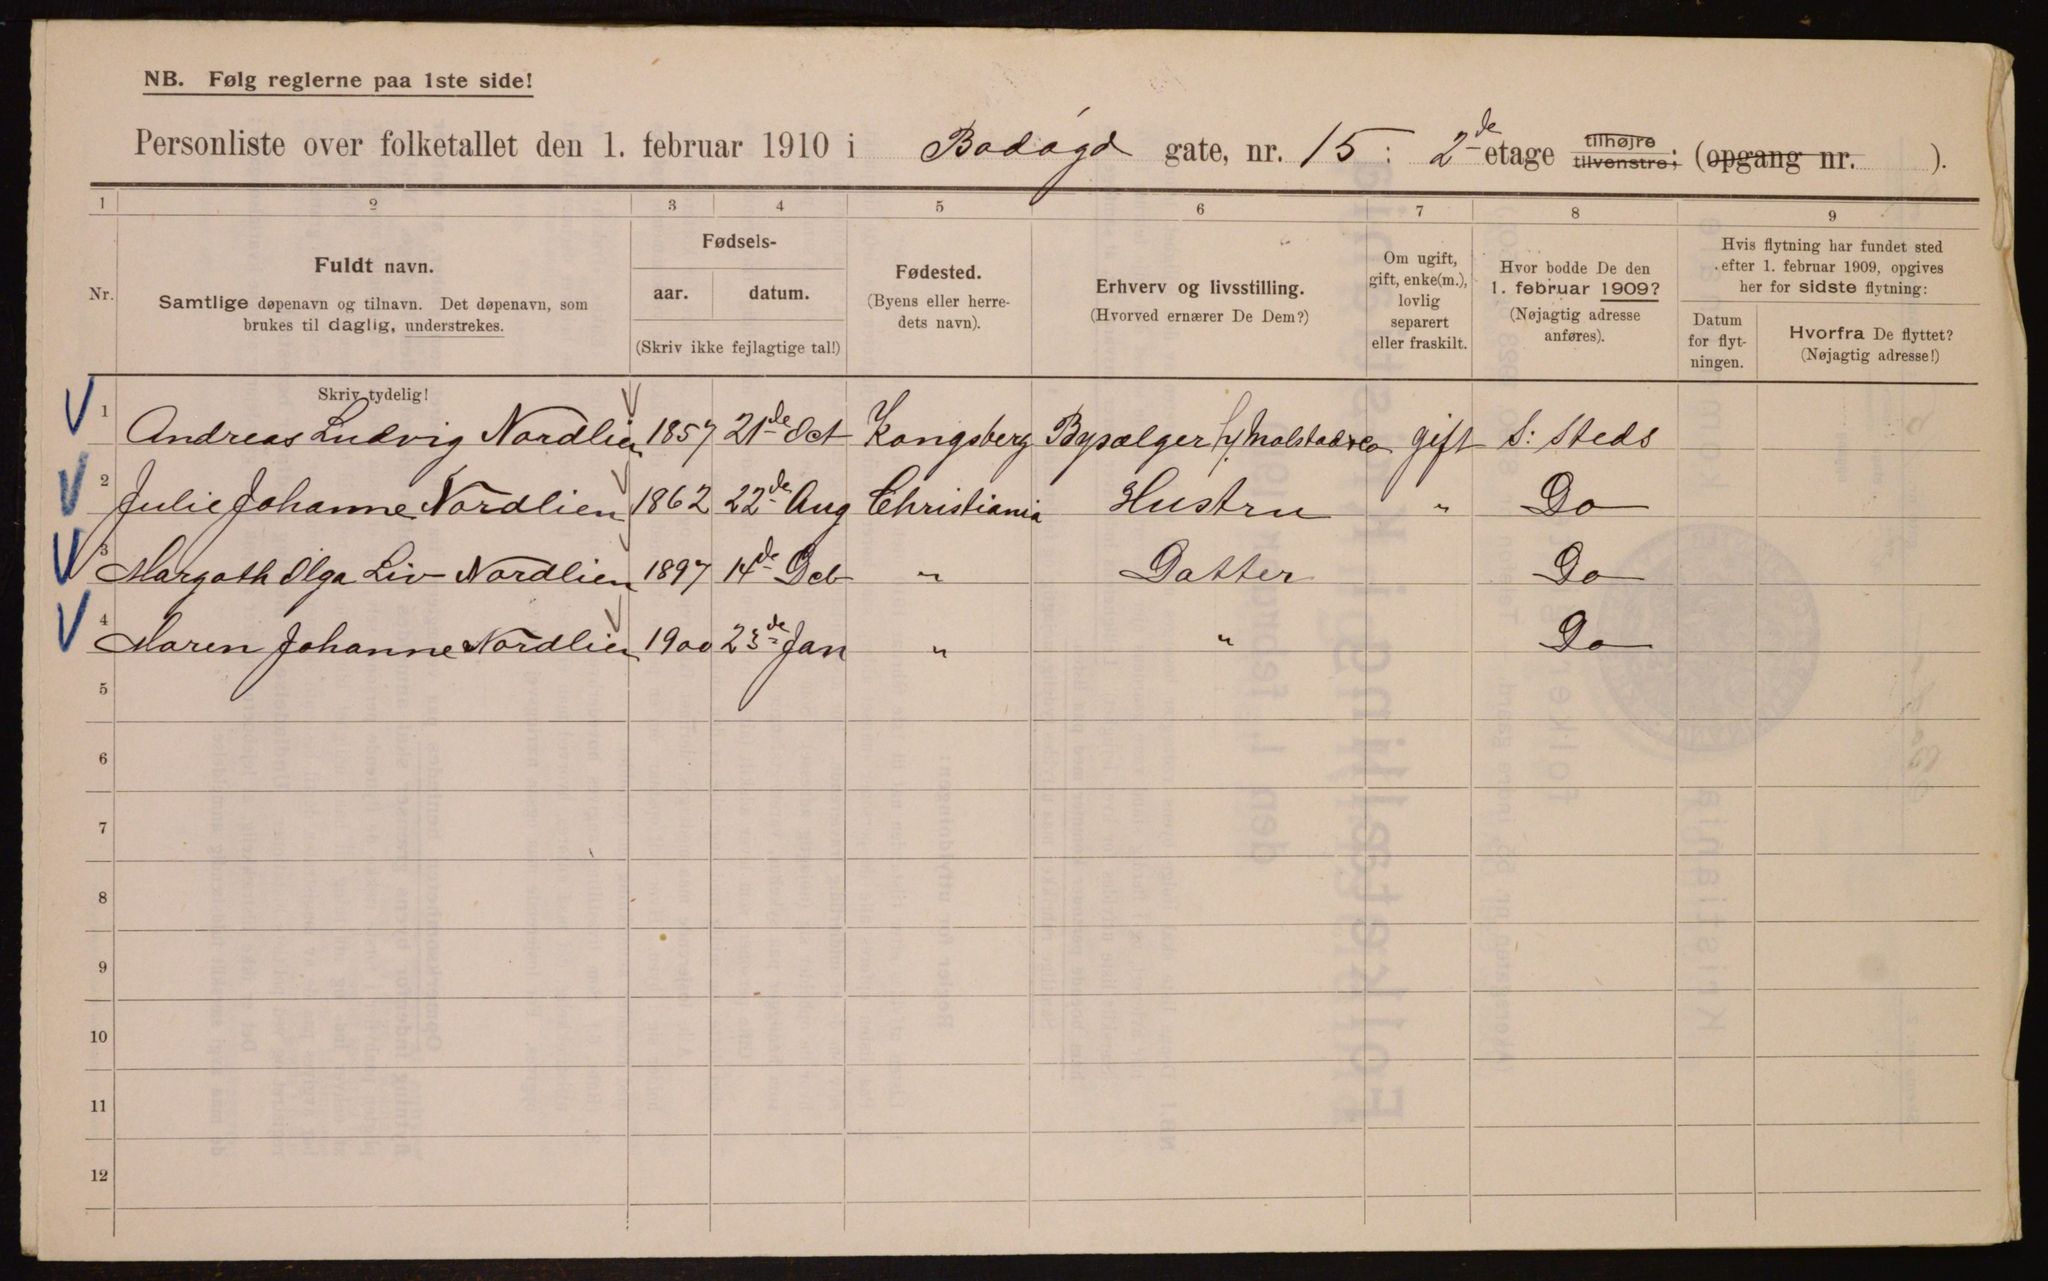 NB. Følg reglerne paa 1ste side!
Personliste over folketallet den 1. februar 1910 i Bodøgd gate, nr. 15 : 2de etage tilhøjre tilvenstre; (opgang nr. ).
1 2 3 4 5 6 7 8 9
Nr.
Fuldt navn.
Samtlige døpenavn og tilnavn. Det døpenavn, som
brukes til daglig, understrekes.
Fødsels-
aar. datum.
(Skriv ikke fejlagtige tal!)
Fødested.
(Byens eller herre-
dets navn).
Erhverv og livsstilling.
(Hvorved ernærer De Dem?)
Om ugift,
gift, enke(m.),
lovlig
separert
eller fraskilt.
Hvor bodde De den
1. februar 1909?
(Nøjagtig adresse
anføres).
Hvis flytning har fundet sted
efter 1. februar 1909, opgives
her for sidste flytning:
Datum
for flyt-
ningen.
Hvorfra De flyttet?
(Nøjagtig adresse!)
Skriv tydelig!
1 Andreas Ludvig Nordlien 1857 21de Oct Kongsberg Bysælger f/ Molstad & Co gift S: Steds
2 Julie Johanne Nordlien 1862 22de Aug Christiania Hustru " Do
3 Margoth Olga Liv Nordlien 1897 14de Deb " Datter Do
4 Maren Johanne Nordlien 1900 23de Jan " " Do
5
6
7
8
9
10
11
12